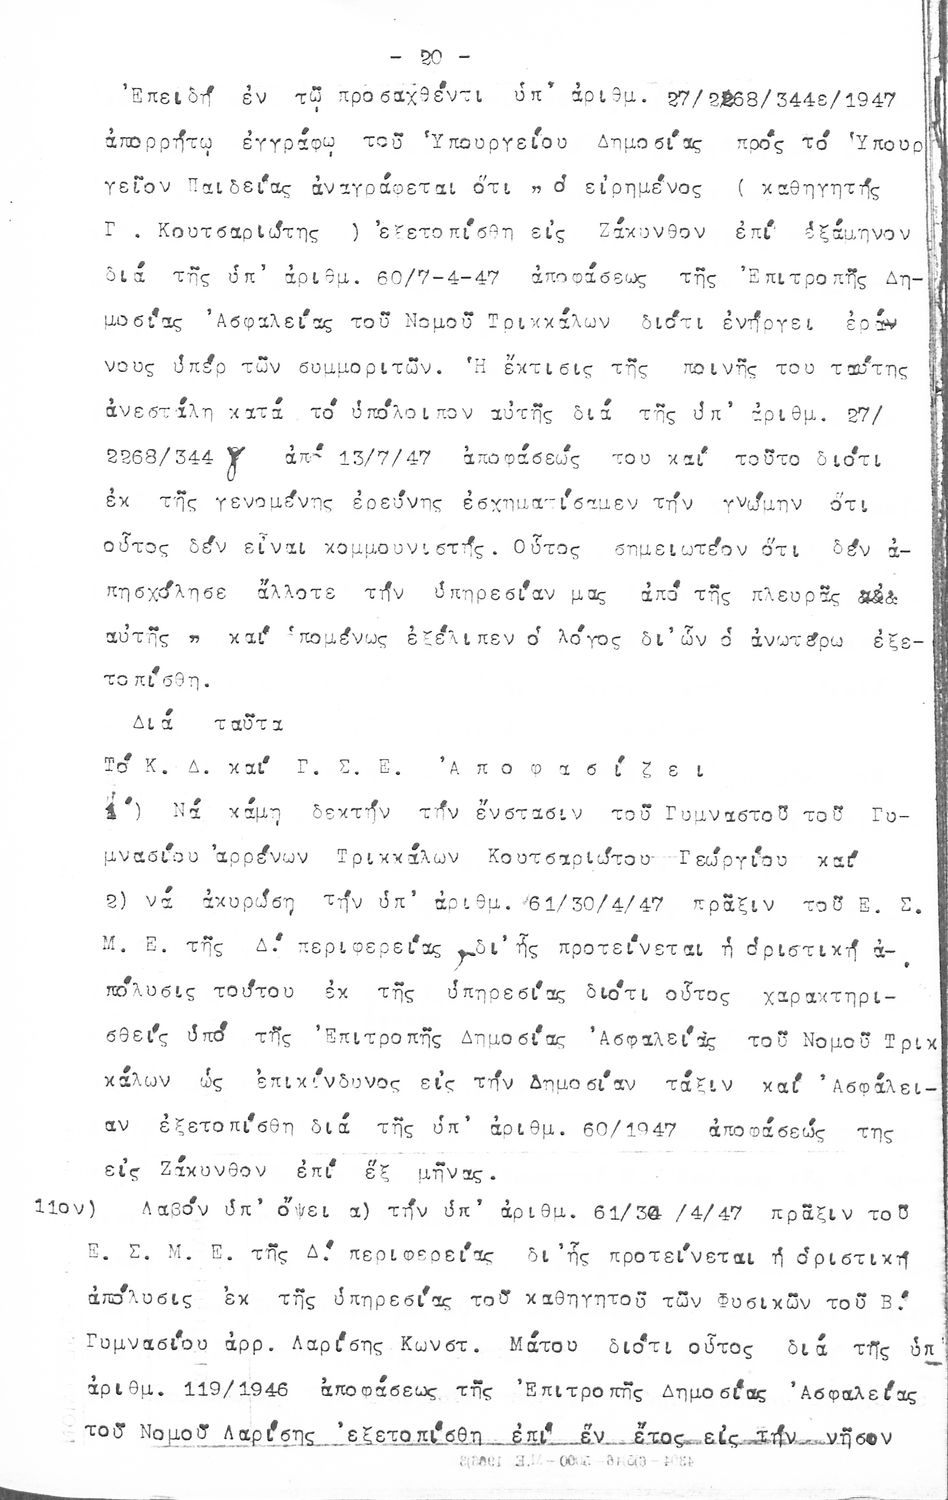 - 20 -
Ἐπειδή ἐν τῷ προσαχθέντι ὑπ' ἀριθμ. 27/2268/344ε/1947
ἀπορρήτῳ ἐγγράφῳ τοῦ Ὑπουργείου Δημοσίας πρός τό Ὑπουρ
γεῖον Παιδείας ἀναγράφεται ὅτι " ὁ εἰρημένος ( καθηγητής
Γ . Κουτσαριώτης ) ἐξετοπίσθη εἰς Ζάκυνθον ἐπί ἑξάμηνον
διά τῆς ὑπ' ἀριθμ. 60/7-4-47 ἀποφάσεως τῆς Ἐπιτροπῆς Δη-
μοσίας Ἀσφαλείας τοῦ Νομοῦ Τρικκάλων διότι ἐνήργει ἐρά
νους ὑπέρ τῶν συμμοριτῶν. Ἡ ἔκτισις τῆς ποινῆς του ταύτης
ἀνεστάλη κατά τό ὑπόλοιπον αὐτῆς διά τῆς ὑπ' ἀριθμ. 27/
2268/344 γ ἀπό 13/7/47 ἀποφάσεώς του καί τοῦτο διότι
ἐκ τῆς γενομένης ἐρεύνης ἐσχηματίσαμεν τήν γνώμην ὅτι
οὗτος δέν εἶναι κομμουνιστής. Οὗτος σημειωτέον ὅτι δέν ἀ-
πησχόλησε ἄλλοτε τήν ὑπηρεσίαν μας ἀπό τῆς πλευρᾶς
αὐτῆς " καί ἑπομένως ἐξέλιπεν ὁ λόγος δι'ὧν ὁ ἀνωτέρω ἐξε-
τοπίσθη.
Διά ταῦτα
Τό Κ. Δ. καί Γ. Σ. Ε. Ἀ π ο φ α σ ί ζ ε ι
1) Νά κάμῃ δεκτήν τήν ἔνστασιν τοῦ Γυμναστοῦ τοῦ Γυ-
μνασίου ἀρρένων Τρικκάλων Κουτσαριώτου Γεώργίου καί
2) νά ἀκυρώσῃ τήν ὑπ' ἀριθμ. 61/30/4/47 πρᾶξιν τοῦ Ε. Σ.
Μ. Ε. τῆς Δ.' περιφερείας , δι'ἧς προτείνεται ἡ ὁριστική ἀ-
πόλυσις τούτου ἐκ τῆς ὑπηρεσίας διότι οὗτος χαρακτηρι-
σθείς ὑπό τῆς Ἐπιτροπῆς Δημοσίας Ἀσφαλείας τοῦ Νομοῦ Τρικ
κάλων ὡς ἐπικίνδυνος εἰς τήν Δημοσίαν τάξιν καί Ἀσφάλει-
αν ἐξετοπίσθη διά τῆς ὑπ' ἀριθμ. 60/1947 ἀποφάσεώς της
εἰς Ζάκυνθον ἐπί ἕξ μῆνας.
11ον) Λαβόν ὑπ' ὄψει α) τήν ὑπ' ἀριθμ. 61/30 /4/47 πρᾶξιν τοῦ
Ε. Σ. Μ. Ε. τῆς Δ.' περιφερείας δι'ἧς προτείνεται ἡ ὁριστική
ἀπόλυσις ἐκ τῆς ὑπηρεσίας τοῦ καθηγητοῦ τῶν Φυσικῶν τοῦ Β.'
Γυμνασίου ἀρρ. Λαρίσης Κωνστ. Μάτου διότι οὗτος διά τῆς ὑπ
ἀριθμ. 119/1946 ἀποφάσεως τῆς Ἐπιτροπῆς Δημοσίας Ἀσφαλείας
τοῦ Νομοῦ Λαρίσης ἐξετοπίσθη ἐπί ἕν ἔτος εἰς τήν νῆσον